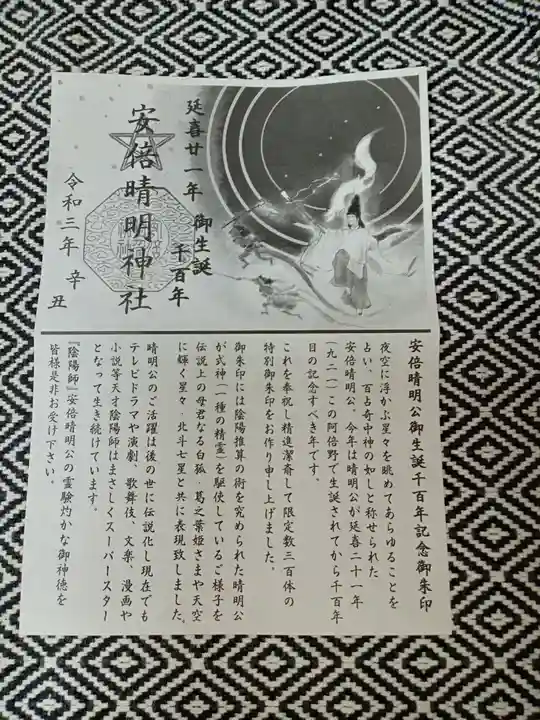 延喜廿一年 御生誕
千百年
安倍晴明神社
令和三年 辛丑
安倍晴明公御生誕千百年記念御朱印
夜空に浮かぶ星々を眺めてあらゆることを
占い、百占奇中神の如しと称せられた
安倍晴明公。今年は晴明公が延喜二十一年
(九二一)この阿倍野で生誕されてから千百年
目の記念すべき年です。
これを奉祝し精進潔斎して限定数三百体の
特別御朱印をお作り申し上げました。
御朱印には陰陽推算の術を究められた晴明公
が式神(一種の精霊)を駆使しているご様子を
伝説上の母君なる白狐・葛之葉姫さまや天空
に輝く星々・北斗七星と共に表現致しました。
晴明公のご活躍は後の世に伝説化し現在でも
テレビドラマや演劇、歌舞伎、文楽、漫画や
小説等天才陰陽師はまさしくスーパースター
となって生き続けています。
『陰陽師』安倍晴明公の霊験灼かな御神徳を
皆様是非お受け下さい。